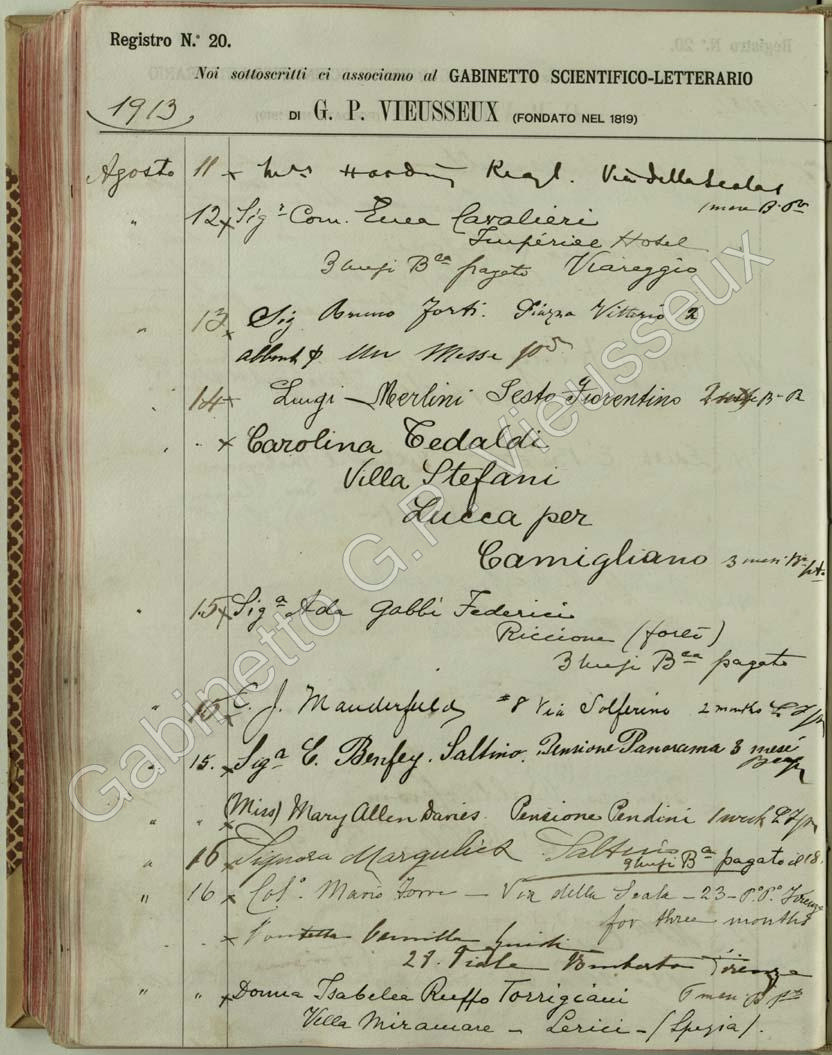 Registro N.º 20.
Noi sottoscritti ci associamo al GABINETTO SCIENTIFICO-LETTERARIO
1913
DI G. P. VIEUSSEUX (FONDATO NEL 1819)
Agosto 11 x Mrs Via della Scala
1 mese B.
" 12 x Sigr Com. Enea Cavalieri
Hotel
3 Bca pagato Viareggio
" 13 x Sig Bruno Forti. Piazza Vittorio 2
un Messe
" 14 Luigi Merlini Sesto Fiorentino
" x Carolina Tedaldi
Villa Stefani
Lucca per
Camigliano 3 mesi
" 15 x Siga Ada Gabbi Federici
Riccione (Forlì)
3 Bca pagato
" 16 x J. Manderfeld #8 Via Solferino 2 months
" 15. x Siga E. Benfey. Saltino. Pensione Panorama 3 mesi
" " x (Miss) Mary Allen Davies. Pensione Pendini 1 week
" 16 x Signora Margulies Saltino
Ba pagato il 18.
" 16 x Mario Torre – Via della Scala – 23 – Pº Pº Firenze
for three months
" x Camilla Guidi
28. Viale Umberto Firenze
" " x Donna Isabella Ruffo Torrigiani
Villa Miramare – Lerici – (Spezia).
Gabinetto G.P. Vieusseux